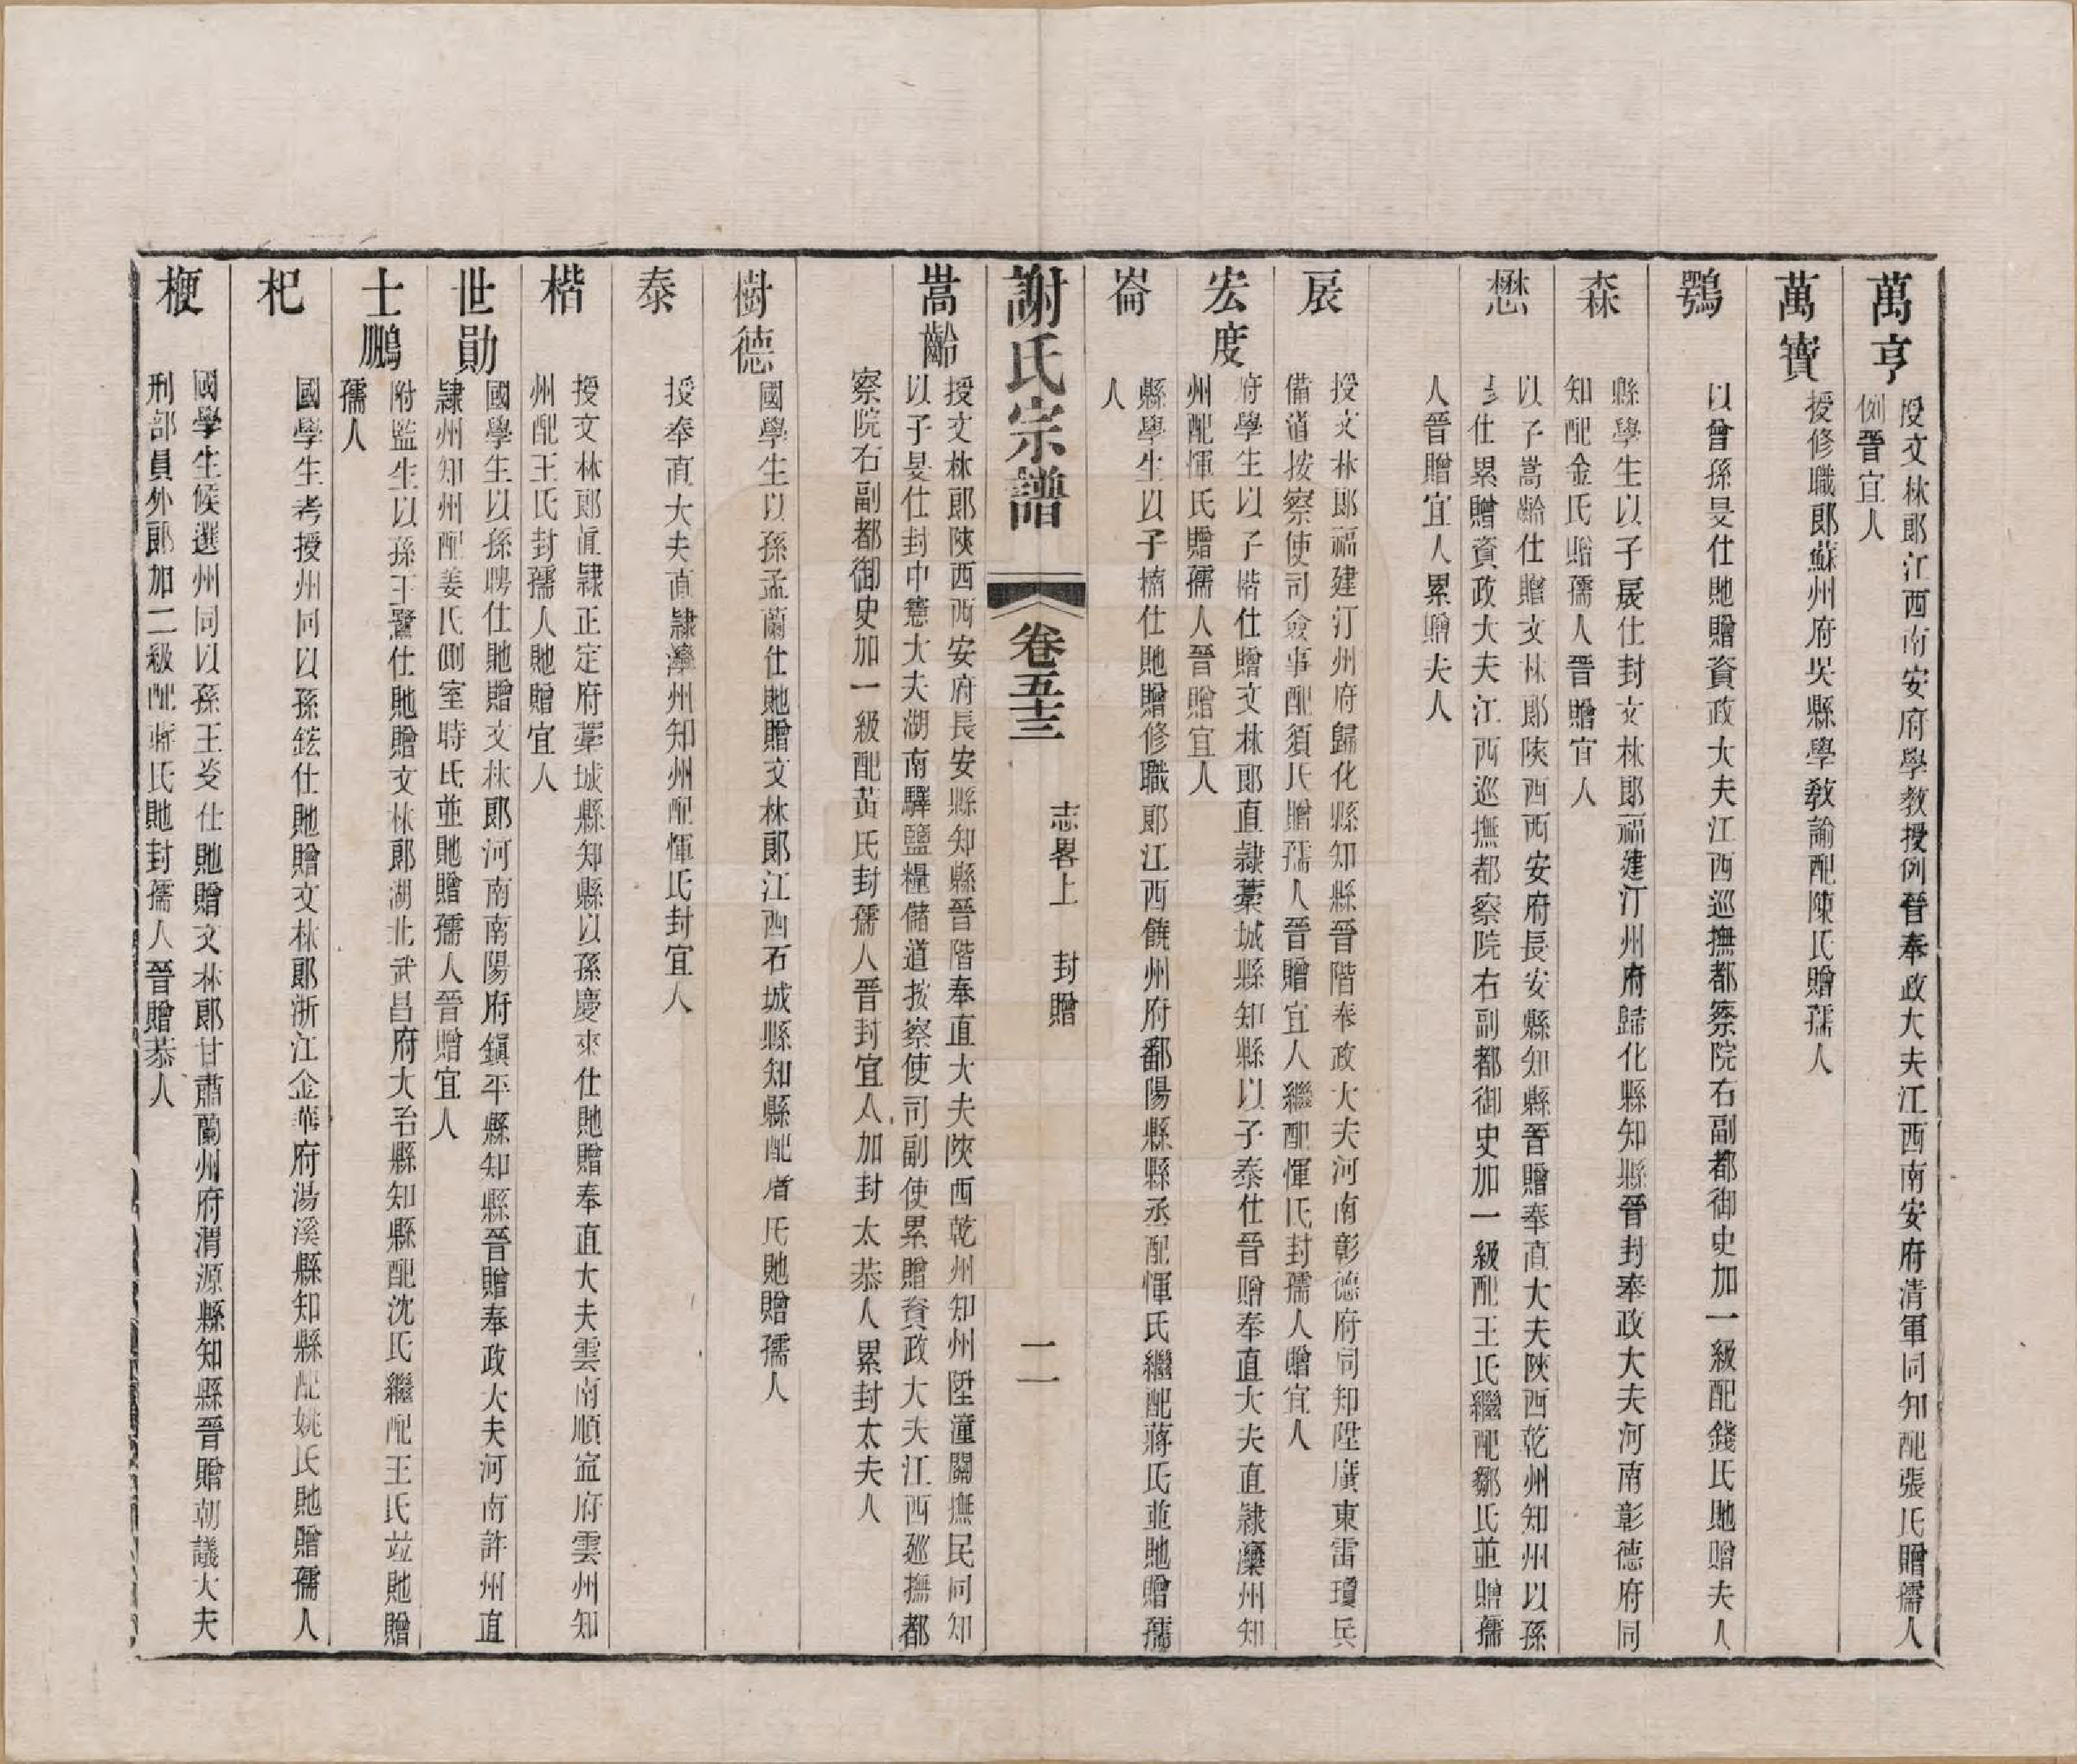 萬亨
授文林郎江西南安府學教授例晉奉政大夫江西南安府清軍同知配張氏贈孺人
例晉宜人
萬寶
授修職郎蘇州府吳縣學教諭配陳氏贈孺人
鶚
以曾孫旻仕貤贈資政大夫江西巡撫都察院右副都御史加一級配錢氏貤贈夫人
森
縣學生以子展仕封文林郎福建汀州府歸化縣知縣晉封奉政大夫河南彰德府同
知配金氏贈孺人晉贈宜人
懋
以子嵩齡仕贈文林郎陝西西安府長安縣知縣晉贈奉直大夫陝西乾州知州以孫
旻仕累贈資政大夫江西巡撫都察院右副都御史加一級配王氏繼配鄒氏並贈孺
人晉贈宜人累贈夫人
展
授文林郎福建汀州府歸化縣知縣晉階奉政大夫河南彰德府同知陞廣東雷瓊兵
備道按察使司僉事配須氏贈孺人晉贈宜人繼配惲氏封孺人贈宜人
宏度
府學生以子楷仕贈文林郎直隸藁城縣知縣以子泰仕晉贈奉直大夫直隸灤州知
州配惲氏贈孺人晉贈宜人
崙
縣學生以子楠仕貤贈修職郎江西饒州府鄱陽縣縣丞配惲氏繼配蔣氏並貤贈孺
人
謝氏宗譜
卷五十三
志畧上 封贈
二
嵩齡
授文林郎陝西西安府長安縣知縣晉階奉直大夫陝西乾州知州陞潼關撫民同知
以子旻仕封中憲大夫湖南驛鹽糧儲道按察使司副使累贈資政大夫江西巡撫都
察院右副都御史加一級配黃氏封孺人晉封宜人加封太恭人累封太夫人
樹德
國學生以孫孟蘭仕貤贈文林郎江西石城縣知縣配 氏貤贈孺人
泰
授奉直大夫直隸灤州知州配惲氏封宜人
楷
授文林郎直隸正定府藁城縣知縣以孫慶來仕貤贈奉直大夫雲南順寧府雲州知
州配王氏封孺人貤贈宜人
世勛
國學生以孫聘仕貤贈文林郎河南南陽府鎮平縣知縣晉贈奉政大夫河南許州直
隸州知州配姜氏側室時氏並貤贈孺人晉贈宜人
士鵬
附監生以孫王鷺仕貤贈文林郎湖北武昌府大冶縣知縣配沈氏繼配王氏竝貤贈
孺人
杞
國學生考授州同以孫鉉仕貤贈文林郎浙江金華府湯溪縣知縣配姚氏貤贈孺人
楩
國學生候選州同以孫王 仕貤贈文林郎甘肅蘭州府渭源縣知縣晉贈朝議大夫
刑部員外郎加二級配蔣氏貤封孺人晉贈恭人